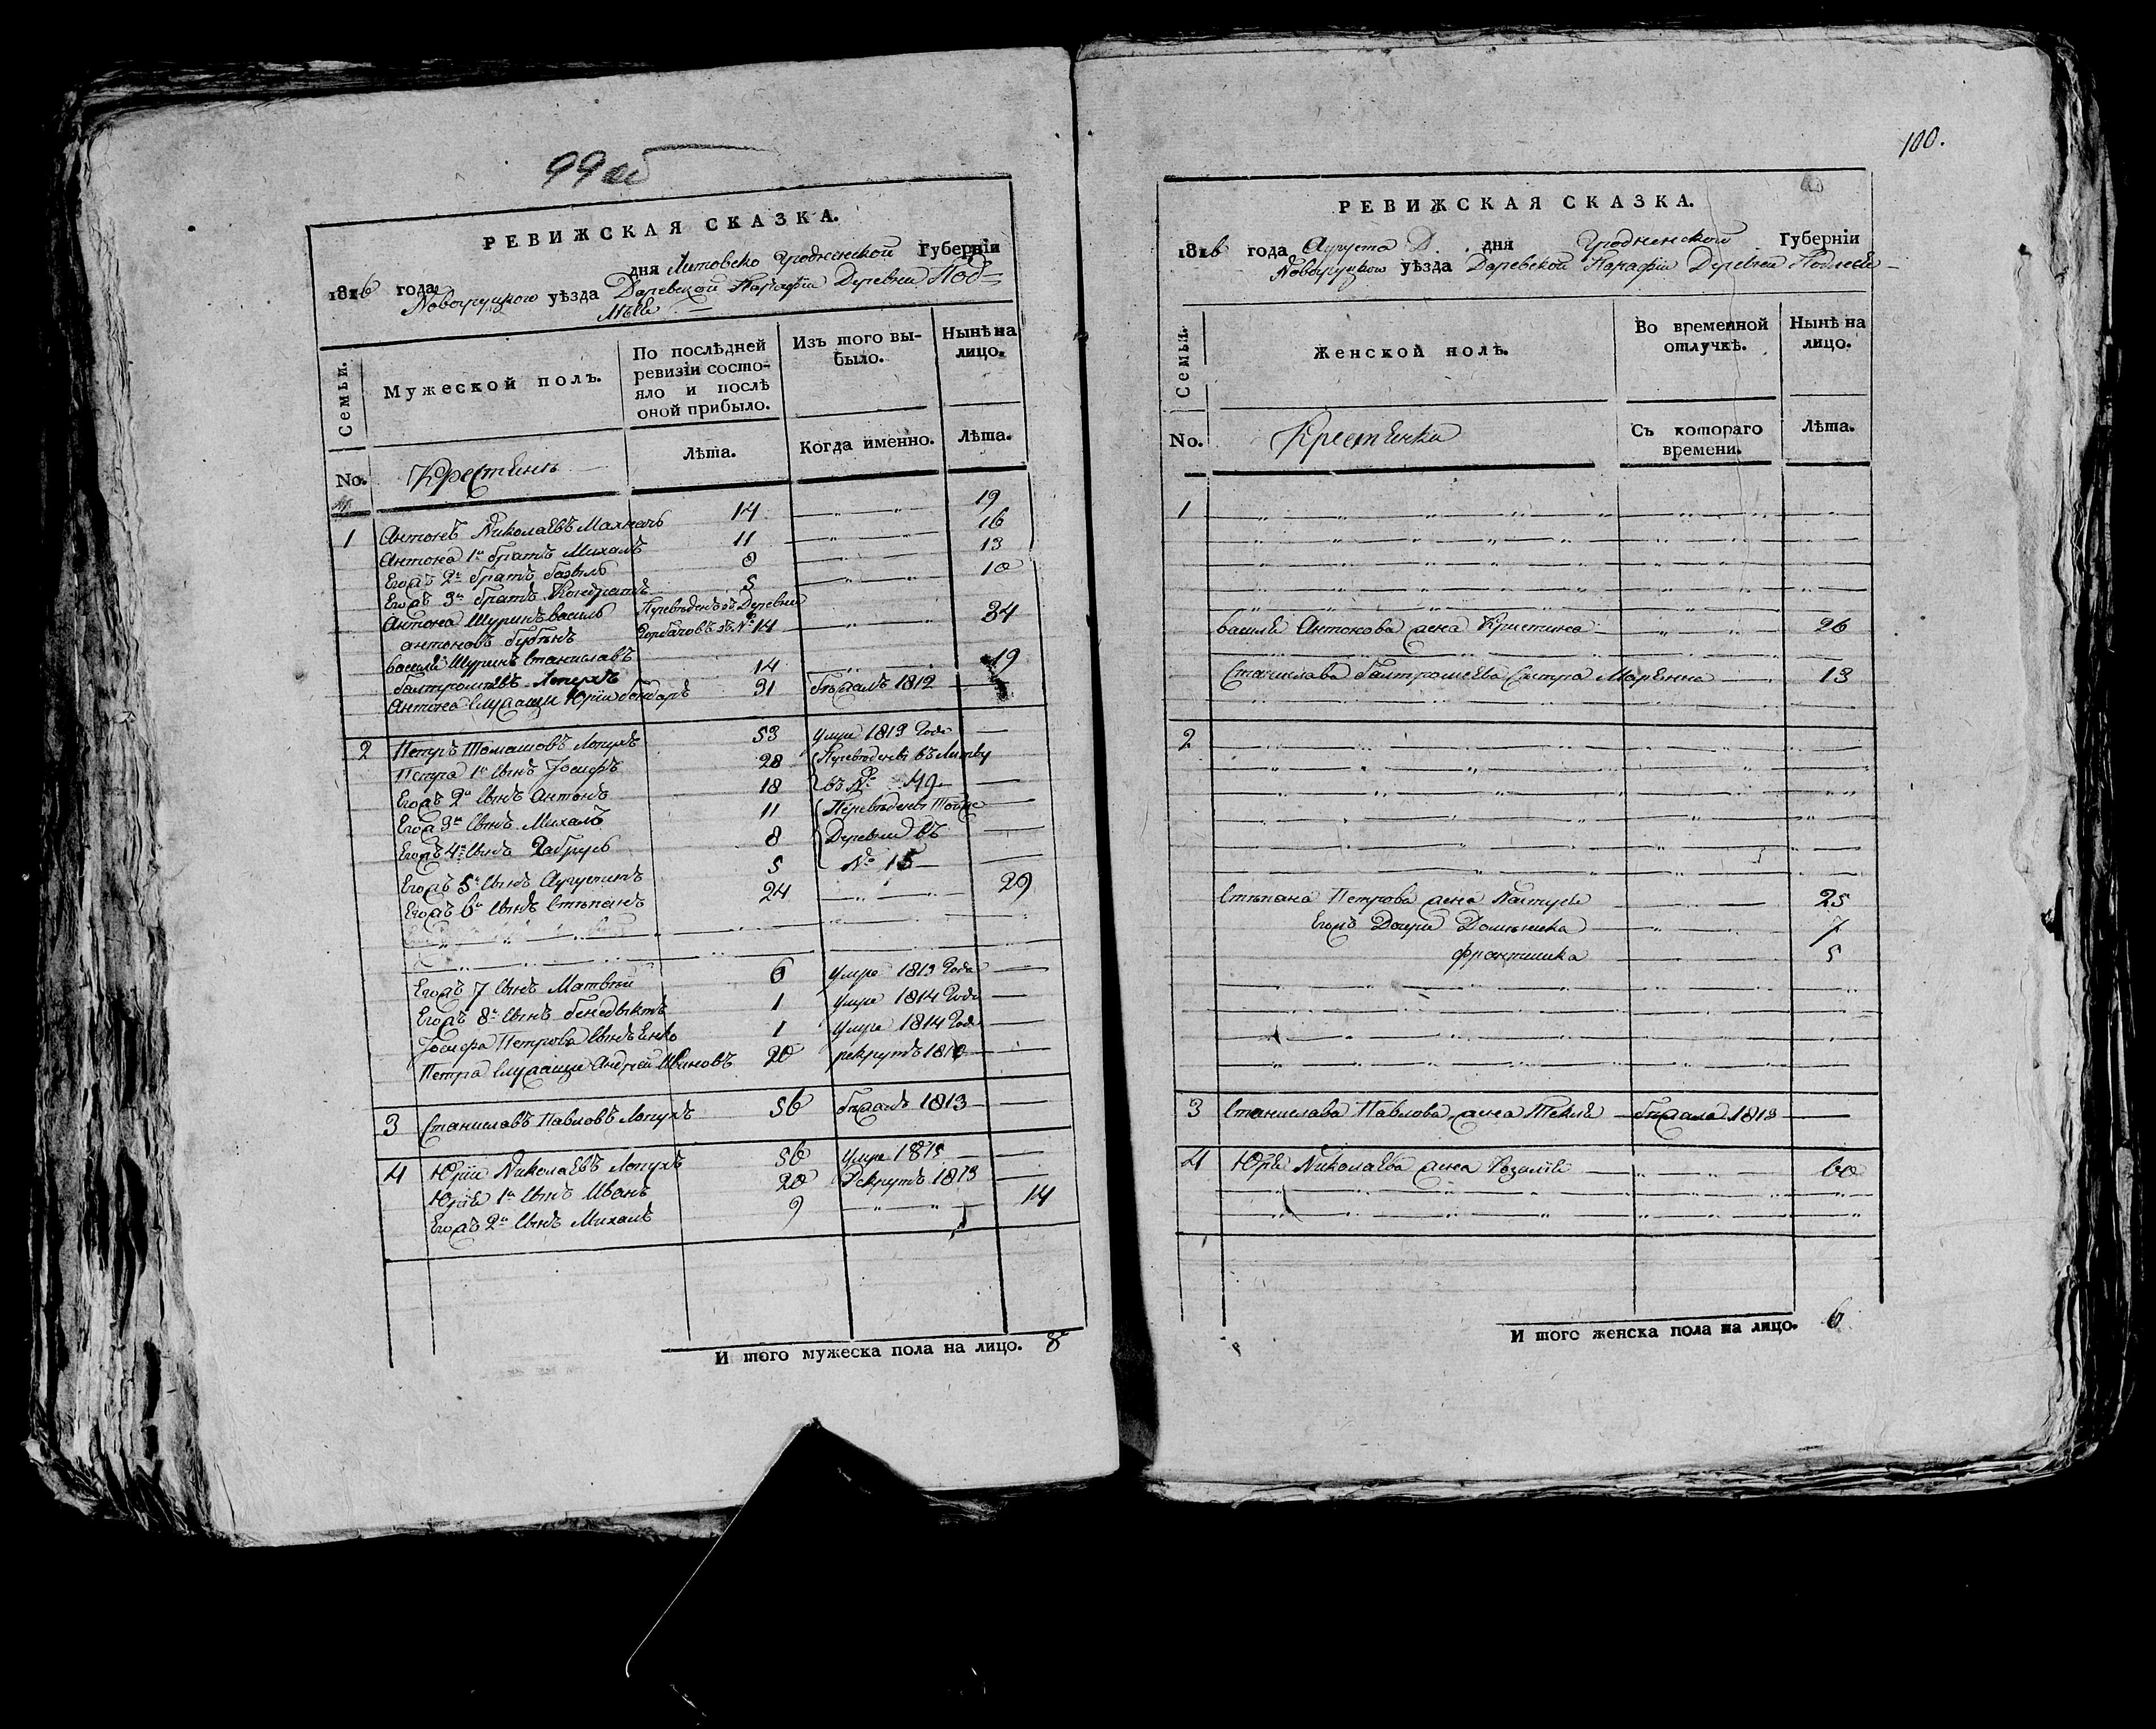 99 об
РЕВИЖСКАЯ СКАЗКА.
1816 года дня Литовско Гродненской Губерніи
Новогруцкого уѣзда Даревской Парафіи Деревни Под=
лѣсе
Семьи.
Мужеской полъ.
По послѣдней ревизіи состо-
яло и послѣ
оной прибыло.
Изъ того вы-
было.
Нынѣ на
лицо.
No.
Крестяне
Лѣта.
Когда именно.
Лѣта.
1 Антонъ Николаевъ Махначь 14 19
Антона 1й братъ Михалъ 11 16
Егожъ 2й братъ базыль 8 13
Егожъ 3й братъ Кондратъ 5 10
Антона Шуринъ василь Переведенъ зъ Деревни
антоновъ Горбачовъ зъ № 14 34
василя Шуринъ Станиславъ
балтромѣевъ Лопухъ 14 19
Антона служащи Юріи бондаръ 31 бѣжалъ 1812
2 Петръ Томашовъ Лопухъ 53 умре 1813 Года
Петра 1й сынъ Іосифъ 28 Переведены въ Литву
Егожъ 2й сынъ Антонъ 18 въ №
Егожъ 3й сынъ Михалъ 11 Переведены Тойже
Егожъ 4й сынъ Габрусь 8 Деревни въ
Егожъ 5й сынъ Аугустинъ 5 № 15
Егожъ 6й сынъ Стѣпанъ 24 29
Егожъ 7 сынъ Матвѣй 6 умре 1813 Года
Егожъ 8й сынъ бенедыктъ 1 умре 1814 Года
Іосифа Петрова сынъ 1 умре 1814 Года
Петра служащи Андрей Ивановъ 20 рекрутъ 1810
3 Станиславъ Павловъ Лопухъ 56 бѣжалъ 1813
4 Юріи Николаевъ Лопухъ 56 умре 1815
Юрія 1й сынъ Иванъ 20 Рекрутъ 1813
Егожъ 2й сынъ Михалъ 9 14
И того мужеска пола на лицо. 8
100.
РЕВИЖСКАЯ СКАЗКА.
1816 года Аугуста дня Гродненской Губерніи
Новогруцкого уѣзда Даревской Парафіи Деревни Подлесе
Семьи.
Женской полъ.
Во временной
отлучкѣ.
Нынѣ на
лицо.
No.
Крестянки
Съ котораго
времени.
Лѣта.
1
василя Антонова жена Кристина 26
Станислава балтромеева Сястра Марянна 13
2
Стѣпана Петрова жена 25
Егожъ Дочери Доминика 7
франтишка 5
3 Станислава Павлова жена Текля бѣжала 1813
4 Юрія Николаева жена Розалія 60
И того женска пола на лицо. 6